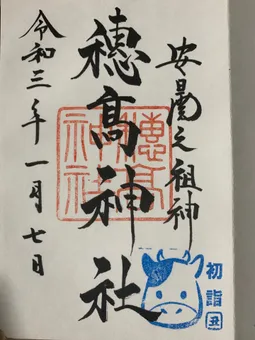 安曇之祖神
穂高神社
令和三年一月七日
穂高神社
初詣
丑